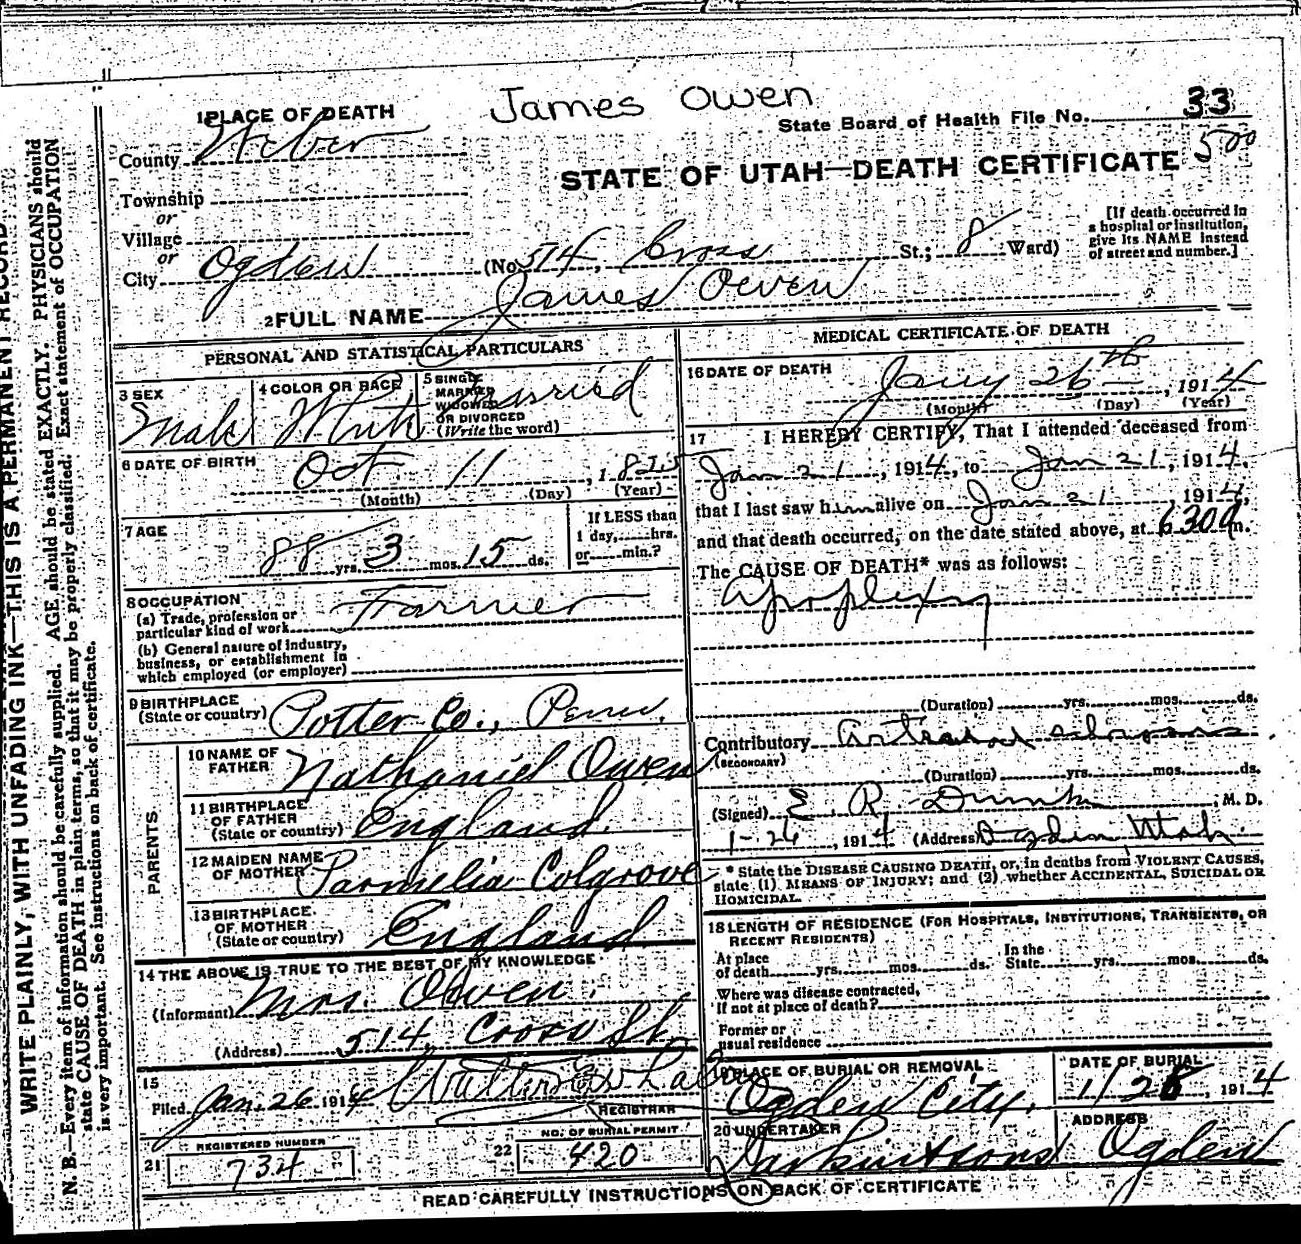 James Owen
1 PLACE OF DEATH
State Board of Health File No. 33
County Weber
500
STATE OF UTAH—DEATH CERTIFICATE
Township
or
Village
or
City Ogden (No. 514, Cross St.; 8 Ward)
[If death occurred in
a hospital or institution,
give its NAME instead
of street and number.]
2 FULL NAME James Owen
PERSONAL AND STATISTICAL PARTICULARS
3 SEX Male
4 COLOR OR RACE White
5 SINGLE
MARRIED
WIDOWED
OR DIVORCED
(Write the word) Married
6 DATE OF BIRTH Oct 11, 1825
(Month) (Day) (Year)
7 AGE 88 yrs. 3 mos. 15 ds.
If LESS than
1 day, hrs.
or min.?
8 OCCUPATION
(a) Trade, profession or
particular kind of work Farmer
(b) General nature of industry,
business, or establishment in
which employed (or employer)
9 BIRTHPLACE
(State or country) Potter Co., Penn.
PARENTS
10 NAME OF
FATHER Nathaniel Owen
11 BIRTHPLACE
OF FATHER
(State or country) England.
12 MAIDEN NAME
OF MOTHER Parmelia Colgrove
13 BIRTHPLACE
OF MOTHER
(State or country) England
14 THE ABOVE IS TRUE TO THE BEST OF MY KNOWLEDGE
(Informant) Mrs. Owen.
(Address) 514 Cross St.
15
Filed Jan. 26 1914 Walter
REGISTRAR
REGISTERED NUMBER
21 734
NO. OF BURIAL PERMIT
22 420
MEDICAL CERTIFICATE OF DEATH
16 DATE OF DEATH
Jany 26th, 1914
(Month) (Day) (Year)
17 I HEREBY CERTIFY, That I attended deceased from
Jan 21, 1914, to Jan 21, 1914,
that I last saw him alive on Jan 21, 1914,
and that death occurred, on the date stated above, at 630 a m.
The CAUSE OF DEATH* was as follows:
Apoplexy
(Duration) yrs. mos. ds.
Contributory
(SECONDARY)
(Duration) yrs. mos. ds.
(Signed) E. R. M. D.
1-26, 1914 (Address) Ogden Utah.
* State the DISEASE CAUSING DEATH, or, in deaths from VIOLENT CAUSES,
state (1) MEANS OF INJURY; and (2) whether ACCIDENTAL, SUICIDAL OR
HOMICIDAL.
18 LENGTH OF RESIDENCE (FOR HOSPITALS, INSTITUTIONS, TRANSIENTS, OR
RECENT RESIDENTS)
At place
of death yrs. mos. ds.
In the
State yrs. mos. ds.
Where was disease contracted,
if not at place of death?
Former or
usual residence
19 PLACE OF BURIAL OR REMOVAL
Ogden City.
DATE OF BURIAL
1/28, 1914
20 UNDERTAKER
ADDRESS
Ogden
READ CAREFULLY INSTRUCTIONS ON BACK OF CERTIFICATE
WRITE PLAINLY, WITH UNFADING INK—THIS IS A PERMANENT RECORD
N. B.—Every item of information should be carefully supplied. AGE should be stated EXACTLY. PHYSICIANS should
state CAUSE OF DEATH in plain terms, so that it may be properly classified. Exact statement of OCCUPATION
is very important. See instructions on back of certificate.